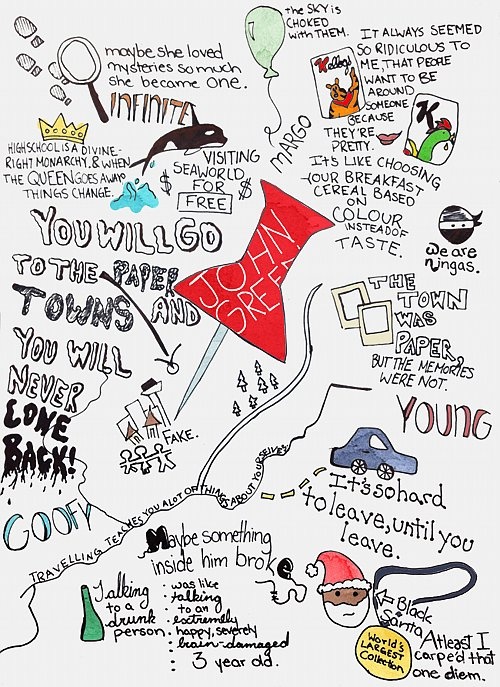 the SKY is
CHOKED
with THEM.
maybe she loved
mysteries so much
she became one.
INFINITE
MARGO
IT ALWAYS SEEMED
SO RIDICULOUS TO
ME, THAT PEOPLE
WANT TO BE
AROUND
SOMEONE
BECAUSE
THEY'RE
PRETTY.
IT'S LIKE CHOOSING
YOUR BREAKFAST
CEREAL BASED
ON
COLOUR
INSTEAD OF
TASTE.
Kellogg
K
HIGHSCHOOL IS A DIVINE-
RIGHT MONARCHY, & WHEN
THE QUEEN GOES AWAY
THINGS CHANGE.
VISITING
$ SEAWORLD $
FOR
FREE
we are
ningas.
JOHN
GREEN
YOU WILL GO
TO THE PAPER
TOWNS AND
YOU WILL
NEVER
COME
BACK!
THE
TOWN
WAS
PAPER,
BUT THE MEMORIES
WERE NOT.
FAKE.
YOUNG
GOOFY
TRAVELLING TEACHES YOU A LOT OF THINGS ABOUT YOURSELVES
It's so hard
to leave, until you
leave.
Maybe something
inside him broke
Talking
to a
drunk
person.
: was like
: talking
: to an
: extremely
: happy, severely
: brain-damaged
: 3 year old.
Black
Santa
World's
LARGEST
Collection
Atleast I
carpe'd that
one diem.